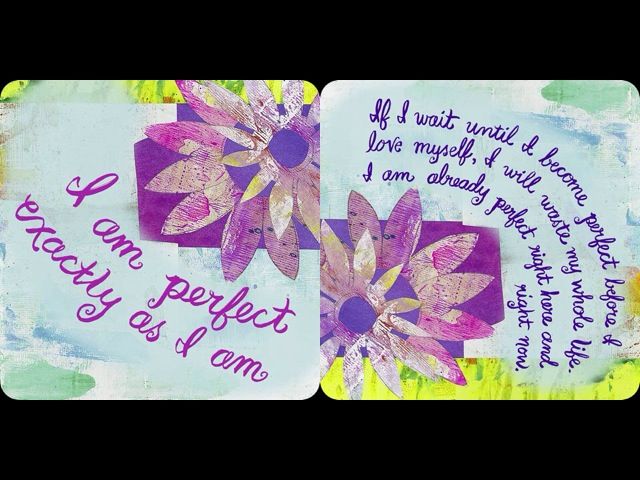 I am perfect
exactly as I am
If I wait until I become perfect before I
love myself, I will waste my whole life.
I am already perfect right here and
right now.